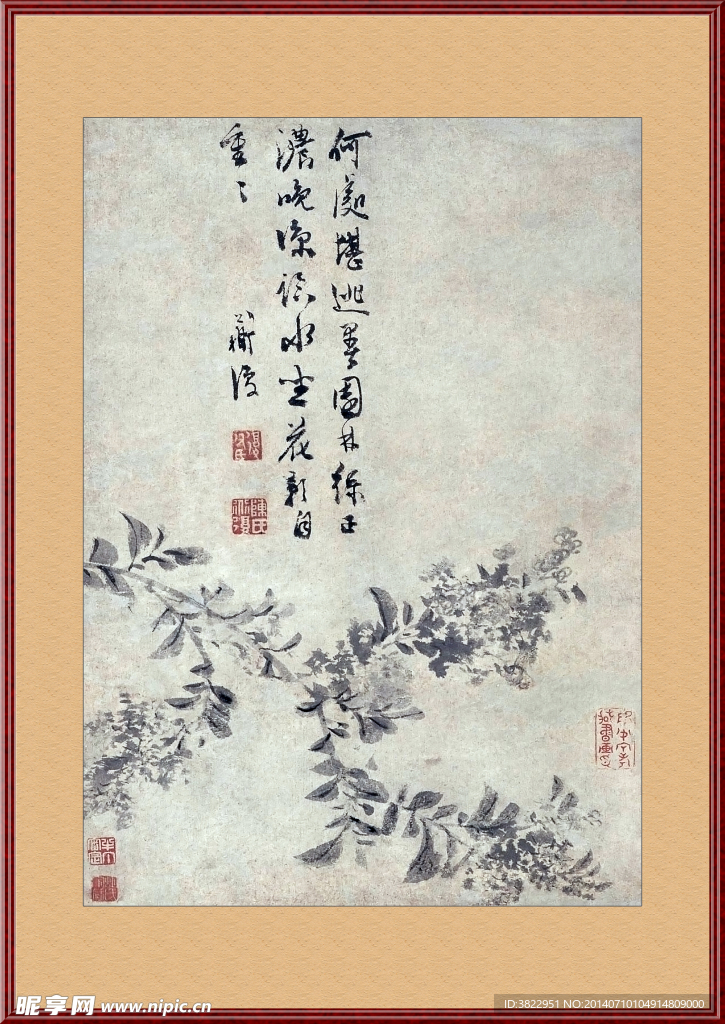 何處堪逃暑園林綠正
濃晚涼臨水坐花影自
重〻
道復
昵享网 www.nipic.cn
ID:3822951 NO:20140710104914809000